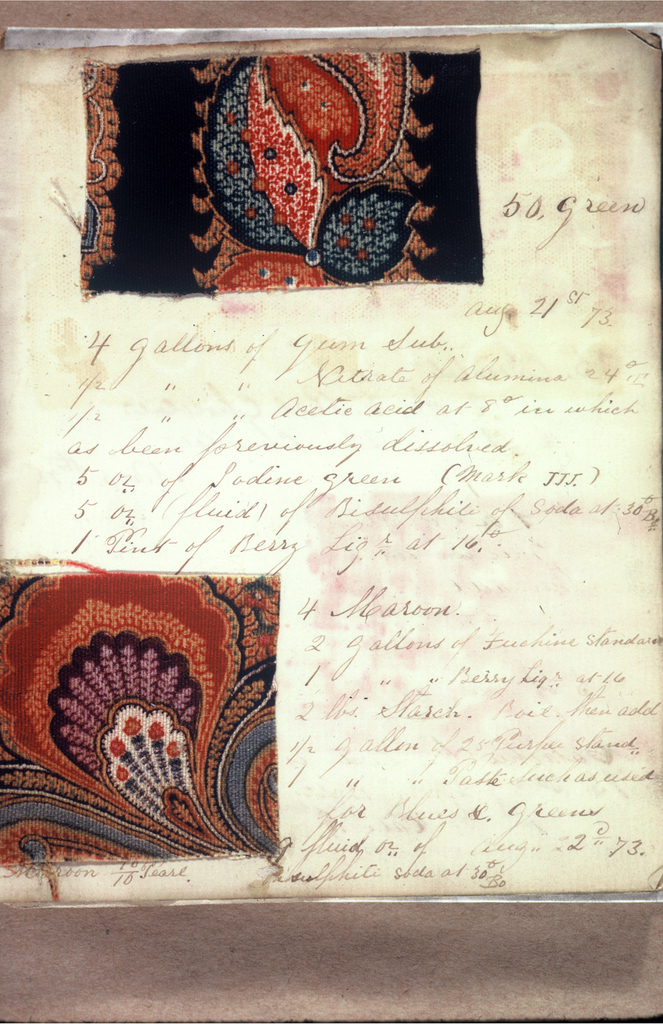 50, Green
Aug 21st 73.
4 gallons of Gum Sub..
1/2 " " Nitrate of Alumina 24°
1/2 " " Acetic Acid at 8° in which
as been previously dissolved.
5 oz of Iodine Green (Mark III.)
5 oz (fluid) of Bisulphite of Soda at 30° Be
1 Pint of Berry Liqr at 16°.
4 Maroon.
2 gallons of Fuchine standard
1 " " Berry Liqr at 16
2 lbs. Starch. Boil. then add
1/2 gallon of 25 Purple stand
1 " " Paste such as used
for Blues & Greens
9 fluid oz of Aug 22d 73.
Bisulphite soda at 30° Bo
Maroon 10/10 Pearl.